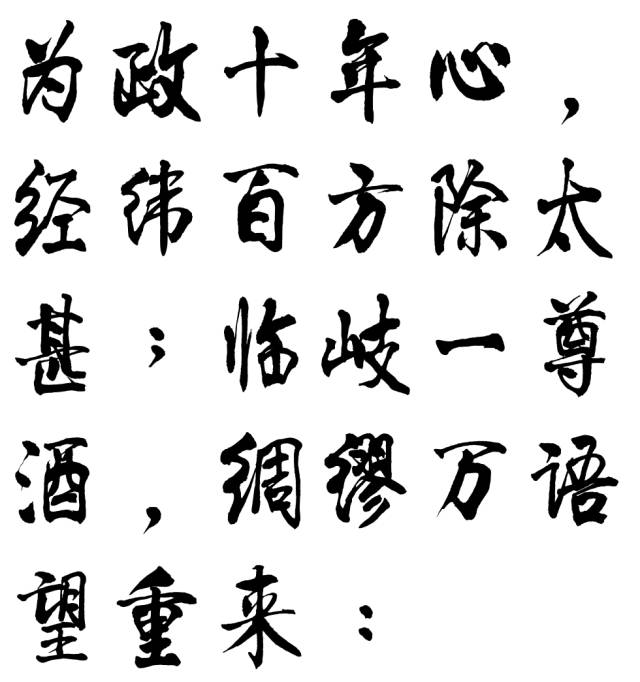 为政十年心，
经纬百方除太
甚；临岐一尊
酒，绸缪万语
望重来：